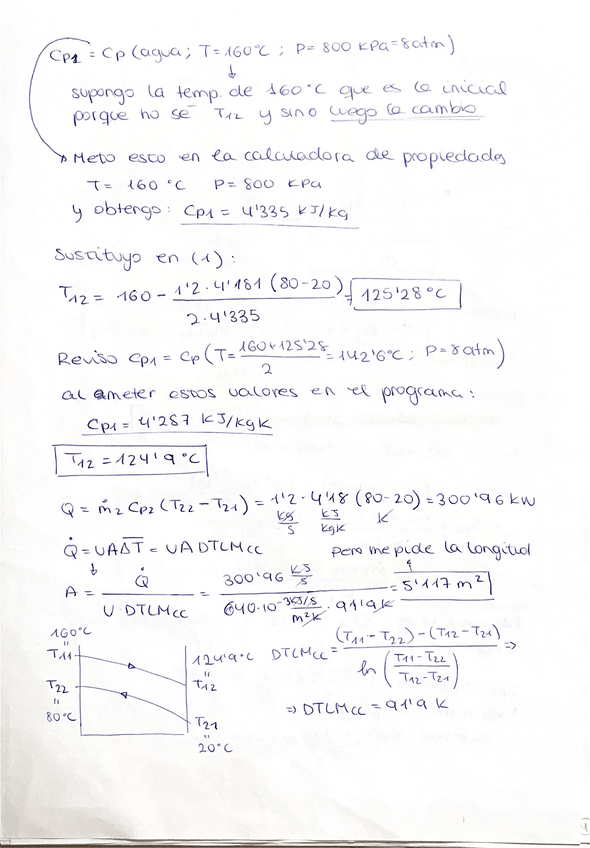 Cp1 = Cp (agua; T=160°C; P= 800 KPa=8atm)
↓
supongo la temp. de 160°C que es la inicial
porque no sé T12 y sino luego lo cambio
Meto esto en la calculadora de propiedades
T= 160 °C P= 800 KPa
y obtengo: Cp1 = 4'335 KJ/kg
Sustituyo en (1):
T12 = 160 - 1'2 · 4'181 (80-20) / 2·4'335 = 125'28 °C
Reviso Cp1 = Cp (T= 160+125'28 / 2 = 142'6°C; P=8atm)
al meter estos valores en el programa:
Cp1 = 4'287 KJ/kgK
T12 = 124'9 °C
Q = ṁ2 Cp2 (T22-T21) = 1'2 · 4'18 (80-20) = 300'96 KW
kg/s KJ/kgK K
Q̇ = UA ΔT = UA DTLMcc pero me pide la longitud
A = Q̇ / U·DTLMcc = 300'96 KJ/s / 640·10⁻³ KJ/s/m²K · 91'9K = 5'117 m²
160°C
T11 124'9°C DTLMcc = (T11-T22) - (T12-T21) / ln (T11-T22 / T12-T21) ⇒
T22 T12
80°C T21 ⇒ DTLMcc = 91'9 K
20°C